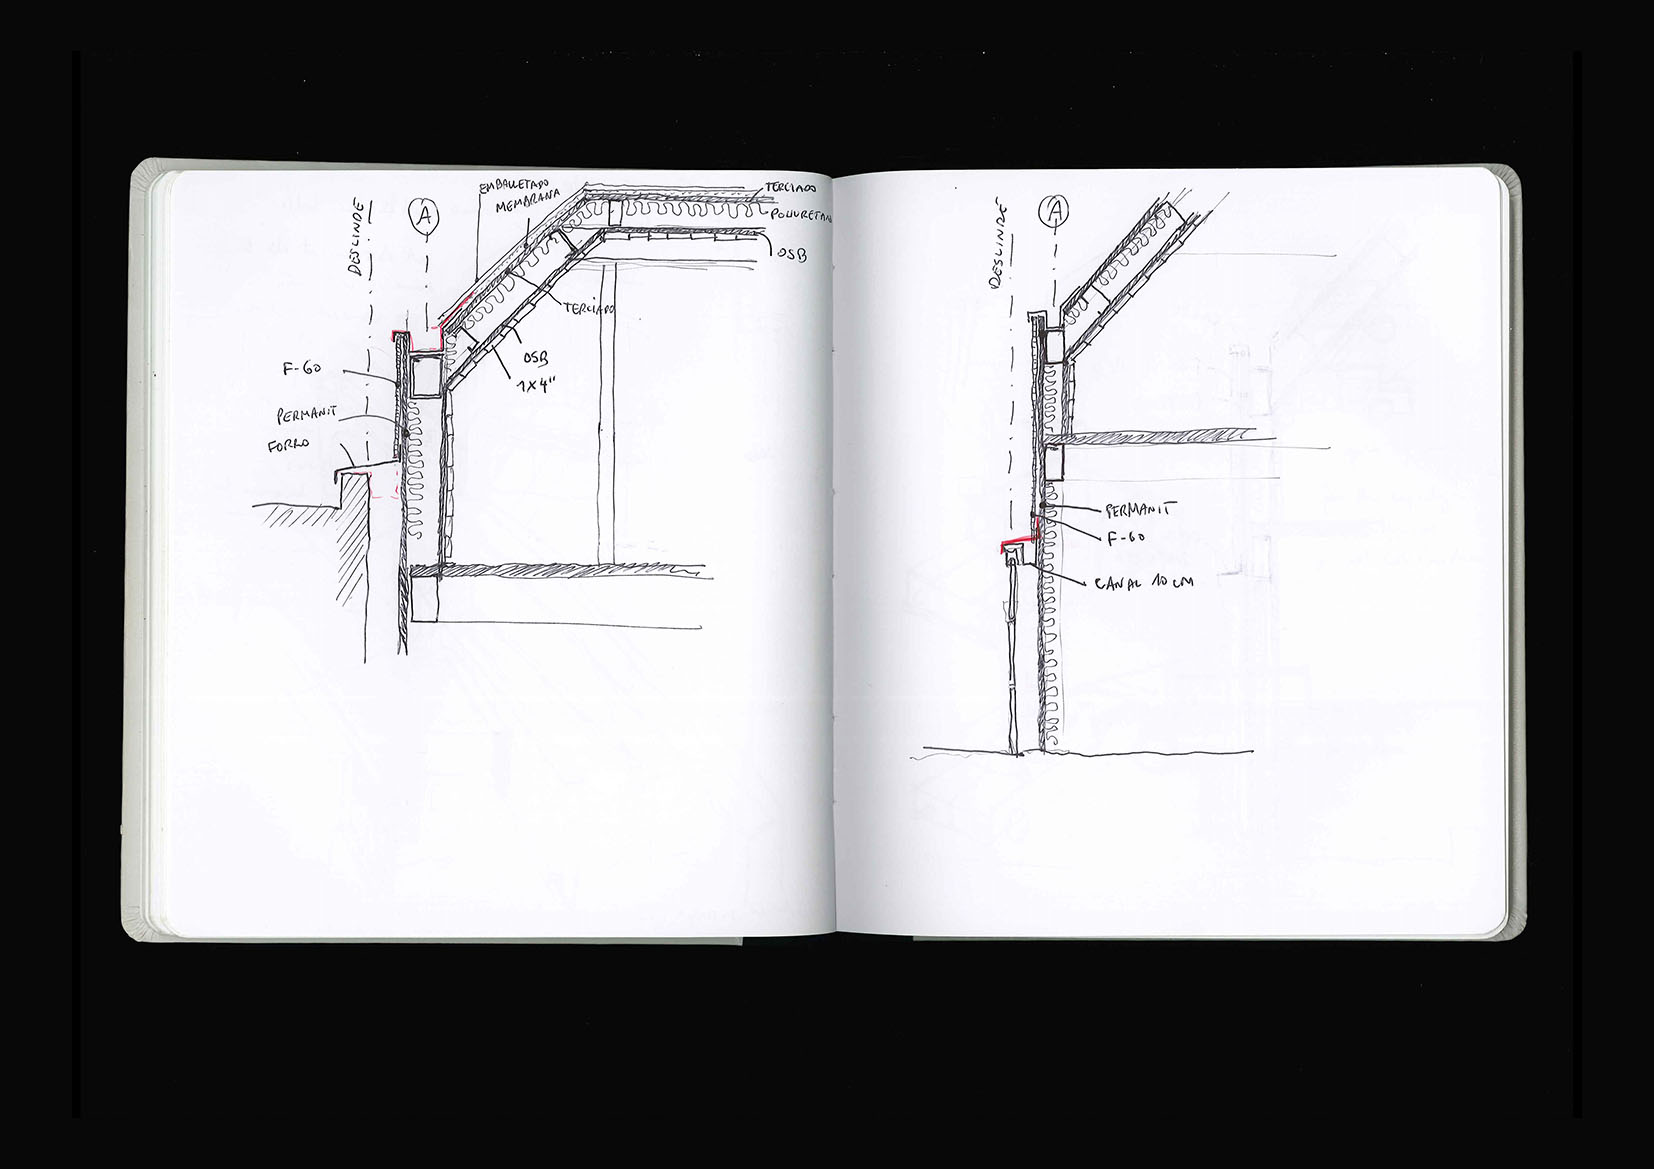 DESLINDE
A
EMBALLETADO
MEMBRANA
TERCIADO
POLIURETANO
OSB
TERCIADO
OSB
1X4"
F-60
PERMANIT
FORRO
DESLINDE
A
PERMANIT
F-60
CANAL 10 CM